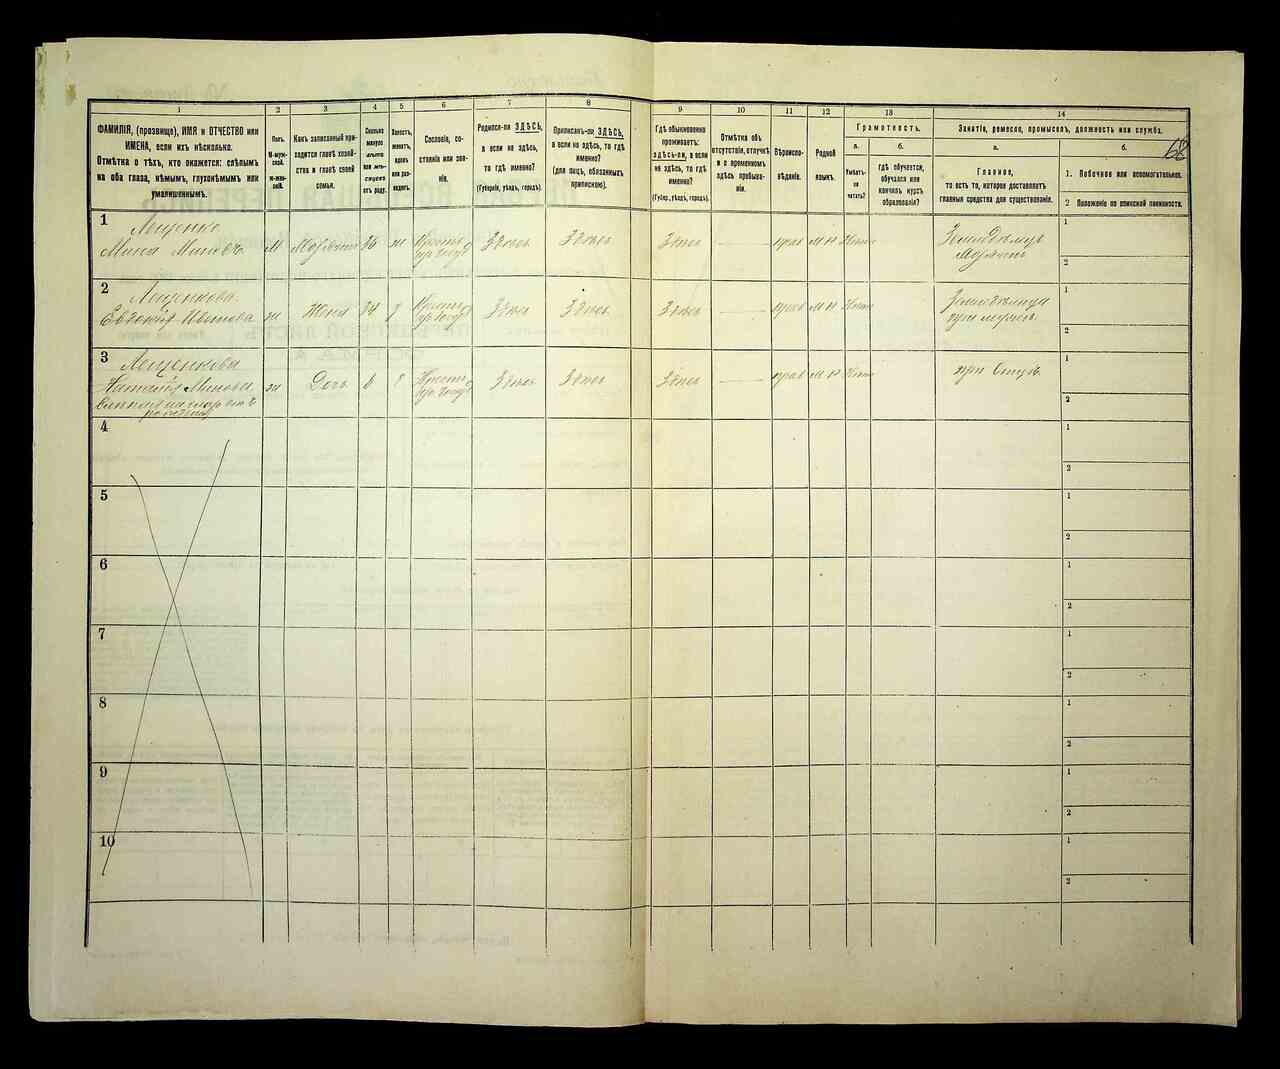 1
ФАМИЛІЯ, (прозвище), ИМЯ и ОТЧЕСТВО или
ИМЕНА, если ихъ нѣсколько.
Отмѣтка о тѣхъ, кто окажется: слѣпымъ
на оба глаза, нѣмымъ, глухонѣмымъ или
умалишеннымъ.
2
Полъ.
М-мужской.
ж-женскій.
3
Какъ записанный при-
ходится главѣ хозяй-
ства и главѣ своей
семьи.
4
Сколько
минуло
лѣтъ
или мѣ-
сяцевъ
отъ роду.
5
Холостъ,
женатъ,
вдовъ
или раз-
веденъ.
6
Сословіе, со-
стояніе или зва-
ніе.
7
Родился-ли ЗДѢСЬ,
а если не здѣсь,
то гдѣ именно?
(Губернія, уѣздъ, городъ).
8
Приписанъ-ли ЗДѢСЬ,
а если не здѣсь, то гдѣ
именно?
(для лицъ, обязанныхъ
припискою).
9
Гдѣ обыкновенно
проживаетъ:
здѣсь-ли, а если
не здѣсь, то гдѣ
именно?
(Губер., уѣздъ, городъ).
10
Отмѣтка объ
отсутствіи, отлучкѣ
и о временномъ
здѣсь пребыва-
ніи.
11
Вѣроиспо-
вѣданіе.
12
Родной
языкъ.
13
Грамотность.
а.
Умѣетъ-
ли
читать?
б.
гдѣ обучается,
обучался или
кончилъ курсъ
образованія?
14
Занятіе, ремесло, промыселъ, должность или служба.
а.
Главное,
то есть то, которое доставляетъ
главныя средства для существованія.
б.
1. Побочное или вспомогательное.
2 Положеніе по воинской повинности.
68
1
Лещенко
Мина Миновъ
м
Хозяинъ
36
ж
Здѣсь
Здѣсь
Здѣсь
прав
М Р
Нѣтъ
Земледѣлецъ
хозяинъ
1
2
2
Лещенкова
Евдокія Иванова
ж
Жена
34
Здѣсь
Здѣсь
Здѣсь
прав
М Р
Нѣтъ
при мужѣ
1
2
3
Лещенкова
Наталія Минова
ж
Дочь
6
Здѣсь
Здѣсь
Здѣсь
прав
М Р
Нѣтъ
при отцѣ
1
2
4
1
2
5
1
2
6
1
2
7
1
2
8
1
2
9
1
2
10
1
2